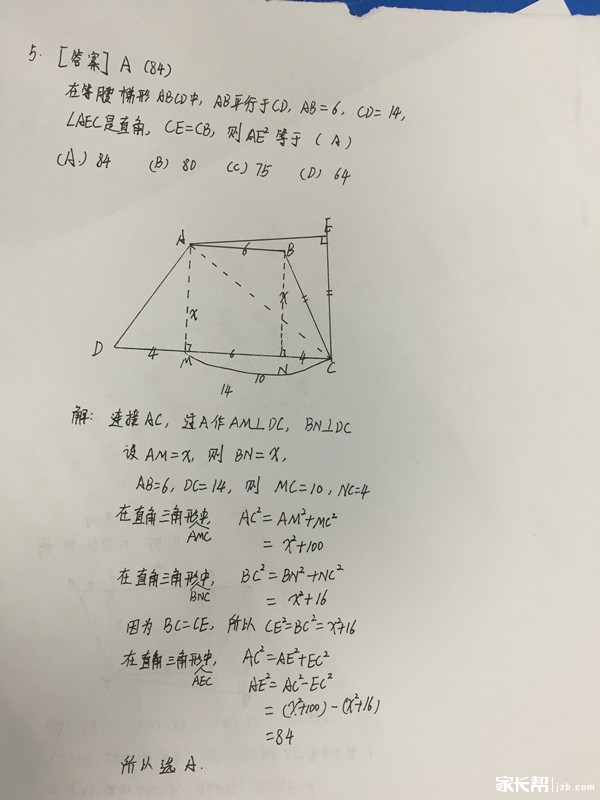 5. [答案] A (84)
在等腰梯形ABCD中, AB平行于CD, AB=6, CD=14,
∠AEC是直角, CE=CB, 则AE²等于 (A)
(A.) 84 (B) 80 (C) 75 (D) 64
E
A 6 B
x x
D 4 M 6 N 4 C
10
14
解: 连接AC, 过A作AM⊥DC, BN⊥DC
设AM=x, 则BN=x,
AB=6, DC=14, 则 MC=10, NC=4
在直角三角形AMC中, AC²=AM²+MC²
= x²+100
在直角三角形BNC中, BC²=BN²+NC²
= x²+16
因为BC=CE, 所以CE²=BC²=x²+16
在直角三角形AEC中, AC²=AE²+EC²
AE²=AC²-EC²
=(x²+100)-(x²+16)
=84
所以选A.
家长帮 jzb.com